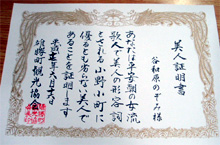 美人証明書
谷和原のぞみ様
あなたは平安朝の女流
歌人で美人の形容詞
とされる小野小町に
優るとも劣らない美人で
あることを証明します
雄勝町観光協会